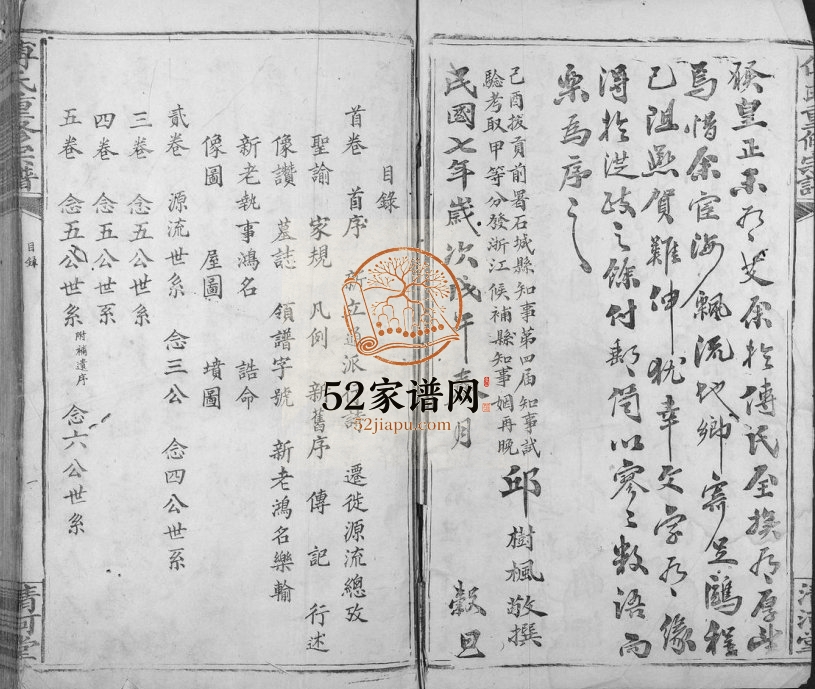 焉惜余宦海飄流他鄉寄足鷗程
已阻燕賀難伸猶幸文字有緣
得於從政之餘付郵筒以寥寥數語而
棄為序之
己酉拔貢前署石城縣知事第四屆知事試
驗考取甲等分發浙江候補縣知事姻再晚
邱樹楓敬撰
民國七年歲次戊午春月 穀旦
目錄
首卷 首序 遷徙源流總攷
聖諭 家規 凡例 新舊序 傳記 行述
像讚 墓誌 領譜字號 新老鴻名樂輸
新老執事鴻名 誥命
像圖 屋圖 墳圖
貳卷 源流世系 念三公 念四公世系
三卷 念五公世系
四卷 念五公世系
五卷 念五公世系 附補遺序 念六公世系
目錄
清河堂
清河堂
52家谱网
52jiapu.com